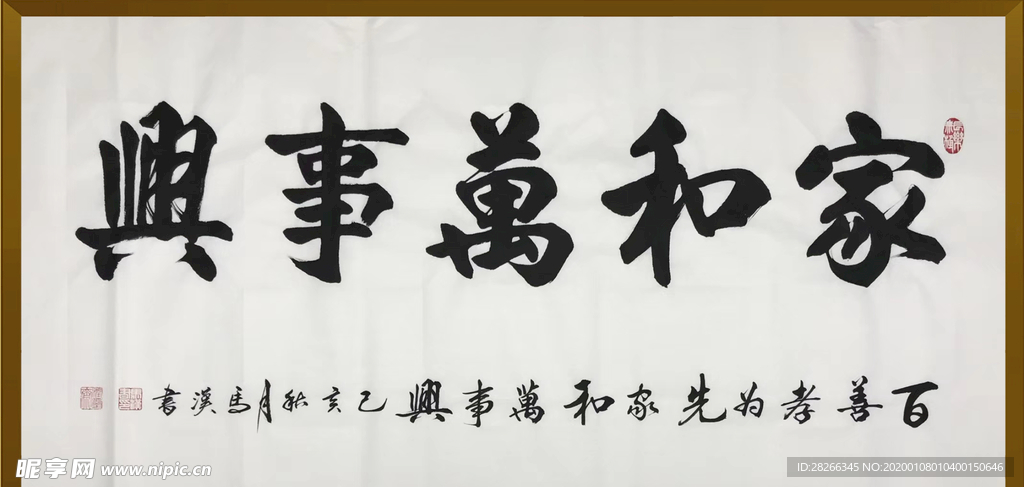 家和萬事興
百善孝為先家和萬事興己亥秋月馬漢書
昵享网 www.nipic.cn
ID:28266345 NO:20200108010400150646